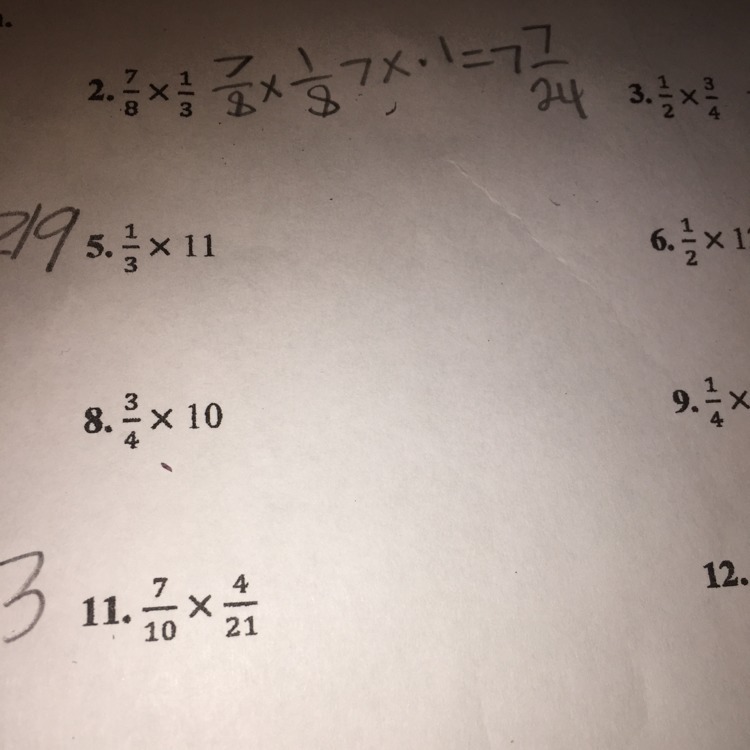 2. 7/8 × 1/3 7/8 × 1/8 7 × · 1 = 7 7/24 3. 1/2 × 3/4
219 5. 1/3 × 11 6. 1/2 × 1
8. 3/4 × 10 9. 1/4 ×
3 11. 7/10 × 4/21 12.